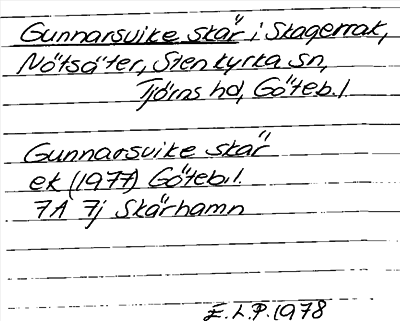 Gunnarsvike skär i Skagerrak,
Nötsäter, Stenkyrka sn,
Tjörns hd, Göteb. l
Gunnarsvike skär
ek (1977) Göteb. l.
7A 7j Skärhamn
E.L.P. 1978